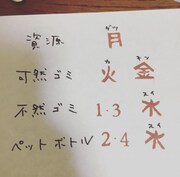 ゲツ
資源 月
カ キン
可然ゴミ 火 金
スイ
不然ゴミ 1·3 水
スイ
ペットボトル 2·4 水